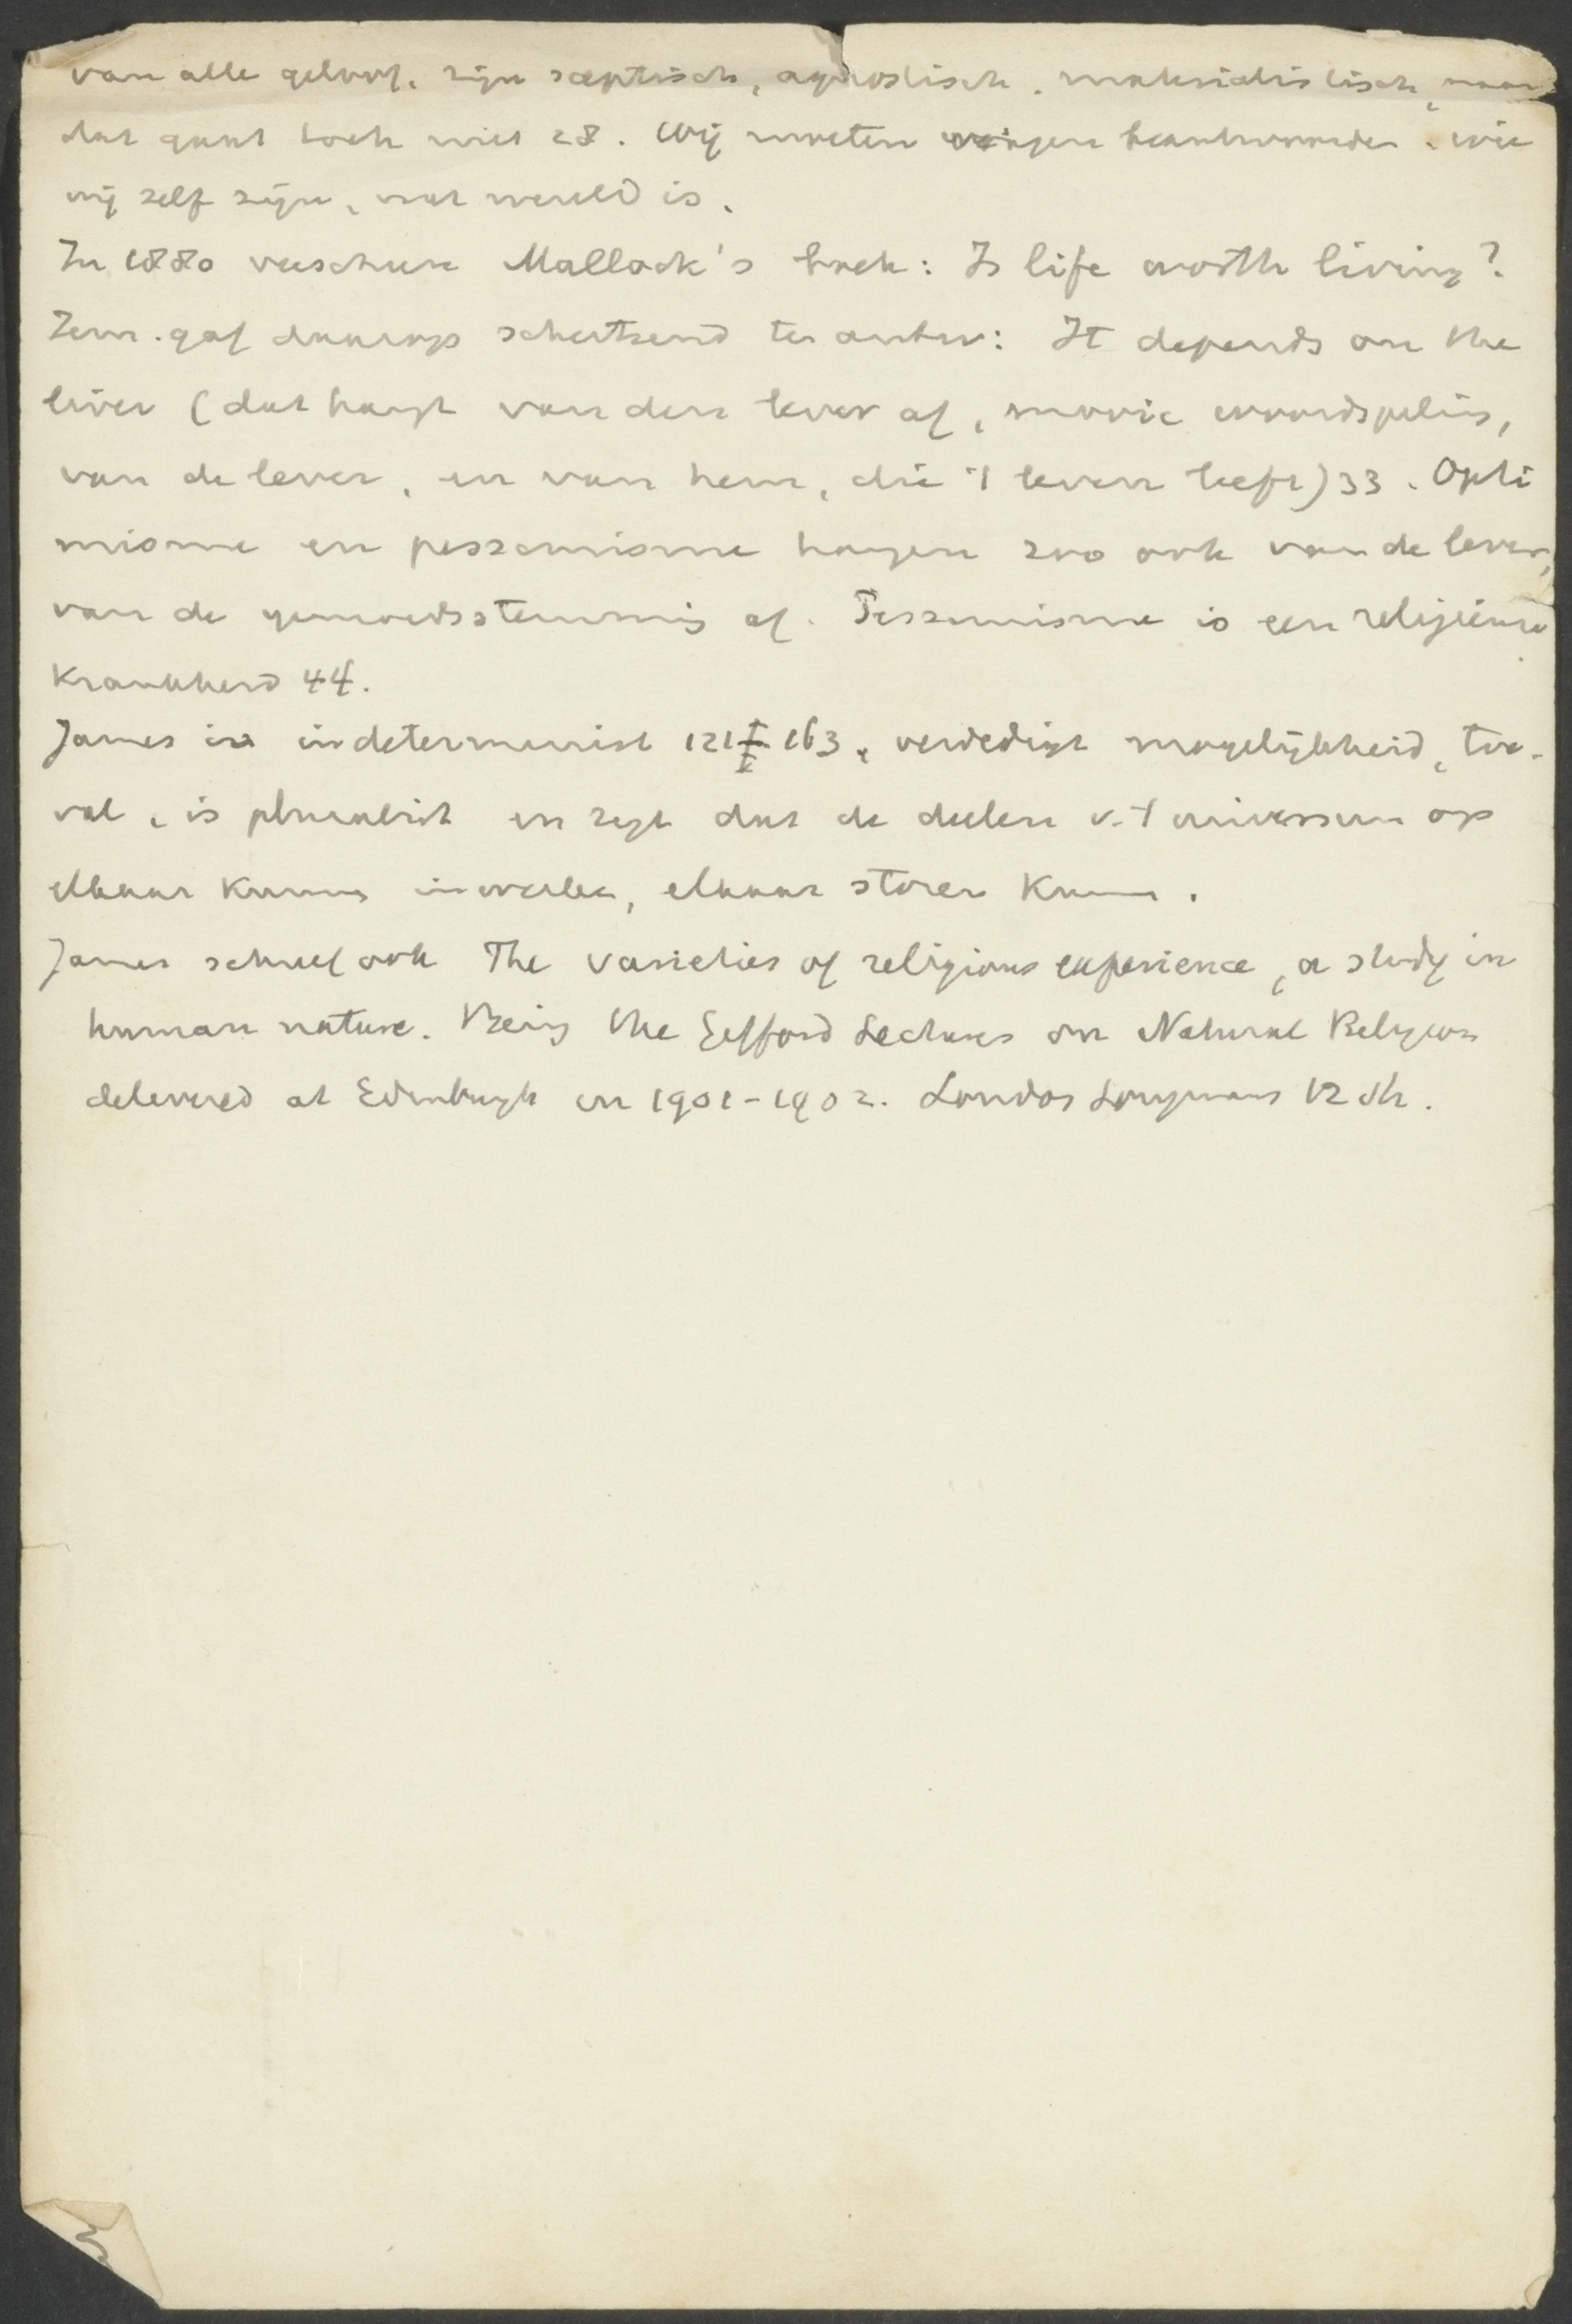 van alle geloof, zijn sceptisch, agnostisch, materialistisch, maar
dat gaat toch niet 28. Wij moeten vragen beantwoorden, wie
wij zelf zijn, wat wereld is.
In 1880 verscheen Mallock's boek: Is life worth living?
Iem. gaf daarop schertsend ten antw: It depends on the
liver (dat hangt van den lever af, mooie woordspeling,
van de lever, en van hem, die 't leven leeft) 33. Opti
misme en pessimisme hangen zoo ook van de lever,
van de gemoedsstemming af. Pessimisme is een religieuse
krankheid 44.
James is indeterminist 121 163, verdedigt mogelijkheid, toe-
val, is pluralist en zegt dat de deelen v. 't universum op
elkaar kunnen inwerken, elkaar storen kunnen.
James schreef ook The varieties of religious experience, a study in
human nature. Being the Gifford Lectures on Natural Religion
delivered at Edinburgh in 1901-1902. London Longmans 12 sh.